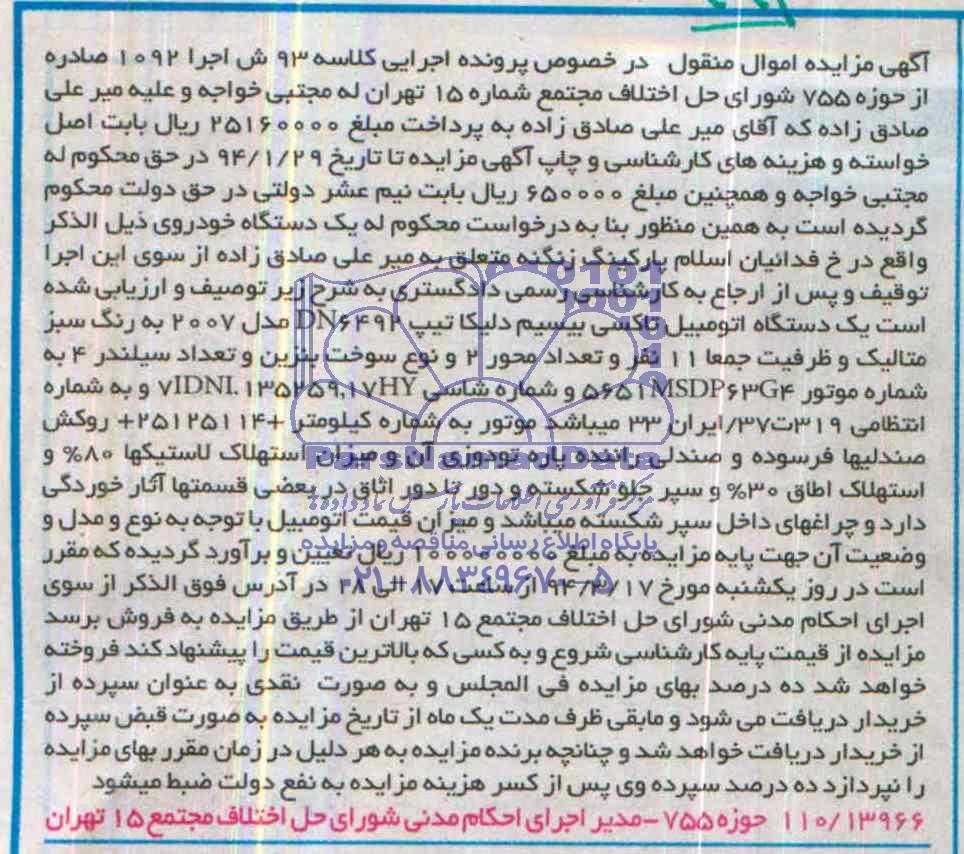 آگهی مزایده اموال منقول در خصوص پرونده اجرایی کلاسه ۹۳ ش اجرا ۱۰۹۲ صادره
از حوزه ۷۵۵ شورای حل اختلاف مجتمع شماره ۱۵ تهران له مجتبی خواجه و علیه میر علی
صادق زاده که آقای میر علی صادق زاده به پرداخت مبلغ ۲۵۱۶۰۰۰۰ ریال بابت اصل
خواسته و هزینه های کارشناسی و چاپ آگهی مزایده تا تاریخ ۹۴/۱/۲۹ در حق محکوم له
مجتبی خواجه و همچنین مبلغ ۶۵۰۰۰۰ ریال بابت نیم عشر دولتی در حق دولت محکوم
گردیده است به همین منظور بنا به درخواست محکوم له یک دستگاه خودروی ذیل الذکر
واقع در خ فدائیان اسلام پارکینگ زنگنه متعلق به میر علی صادق زاده از سوی این اجرا
توقیف و پس از ارجاع به کارشناسی رسمی دادگستری به شرح زیر توصیف و ارزیابی شده
است یک دستگاه اتومبیل تاکسی بیسیم دلیکا تیپ DN۶۴۹۲ مدل ۲۰۰۷ به رنگ سبز
متالیک و ظرفیت جمعا ۱۱ نفر و تعداد محور ۲ و نوع سوخت بنزین و تعداد سیلندر ۴ به
شماره موتور ۵۶۵۱MSDP۶۳G۴ و شماره شاسی ۷IDNI.۱۳۵۲۵۹,۱۷HY و به شماره
انتظامی ۳۱۹ت۳۷/ایران ۳۳ میباشد موتور به شماره کیلومتر +۲۵۱۲۵۱۱۴+ روکش
صندلیها فرسوده و صندلی راننده پاره تودوزی آن و میزان استهلاک لاستیکها ۸۰% و
استهلاک اطاق ۳۰% و سپر جلو شکسته و دور تا دور اتاق در بعضی قسمتها آثار خوردگی
دارد و چراغهای داخل سپر شکسته میباشد و میزان قیمت اتومبیل با توجه به نوع و مدل و
وضعیت آن جهت پایه مزایده به مبلغ ریال تعیین و برآورد گردیده که مقرر
است در روز یکشنبه مورخ ۹۴/۳/۱۷ از ساعت الی در آدرس فوق الذکر از سوی
اجرای احکام مدنی شورای حل اختلاف مجتمع ۱۵ تهران از طریق مزایده به فروش برسد
مزایده از قیمت پایه کارشناسی شروع و به کسی که بالاترین قیمت را پیشنهاد کند فروخته
خواهد شد ده درصد بهای مزایده فی المجلس و به صورت نقدی به عنوان سپرده از
خریدار دریافت می شود و مابقی ظرف مدت یک ماه از تاریخ مزایده به صورت قبض سپرده
از خریدار دریافت خواهد شد و چنانچه برنده مزایده به هر دلیل در زمان مقرر بهای مزایده
را نپردازد ده درصد سپرده وی پس از کسر هزینه مزایده به نفع دولت ضبط میشود
۱۱۰/۱۳۹۶۶ حوزه ۷۵۵ -مدیر اجرای احکام مدنی شورای حل اختلاف مجتمع ۱۵ تهران
ParsNamadData
پایگاه اطلاع رسانی مناقصه و مزایده
۰۲۱-۸۸۳۴۹۶۷۰-۵